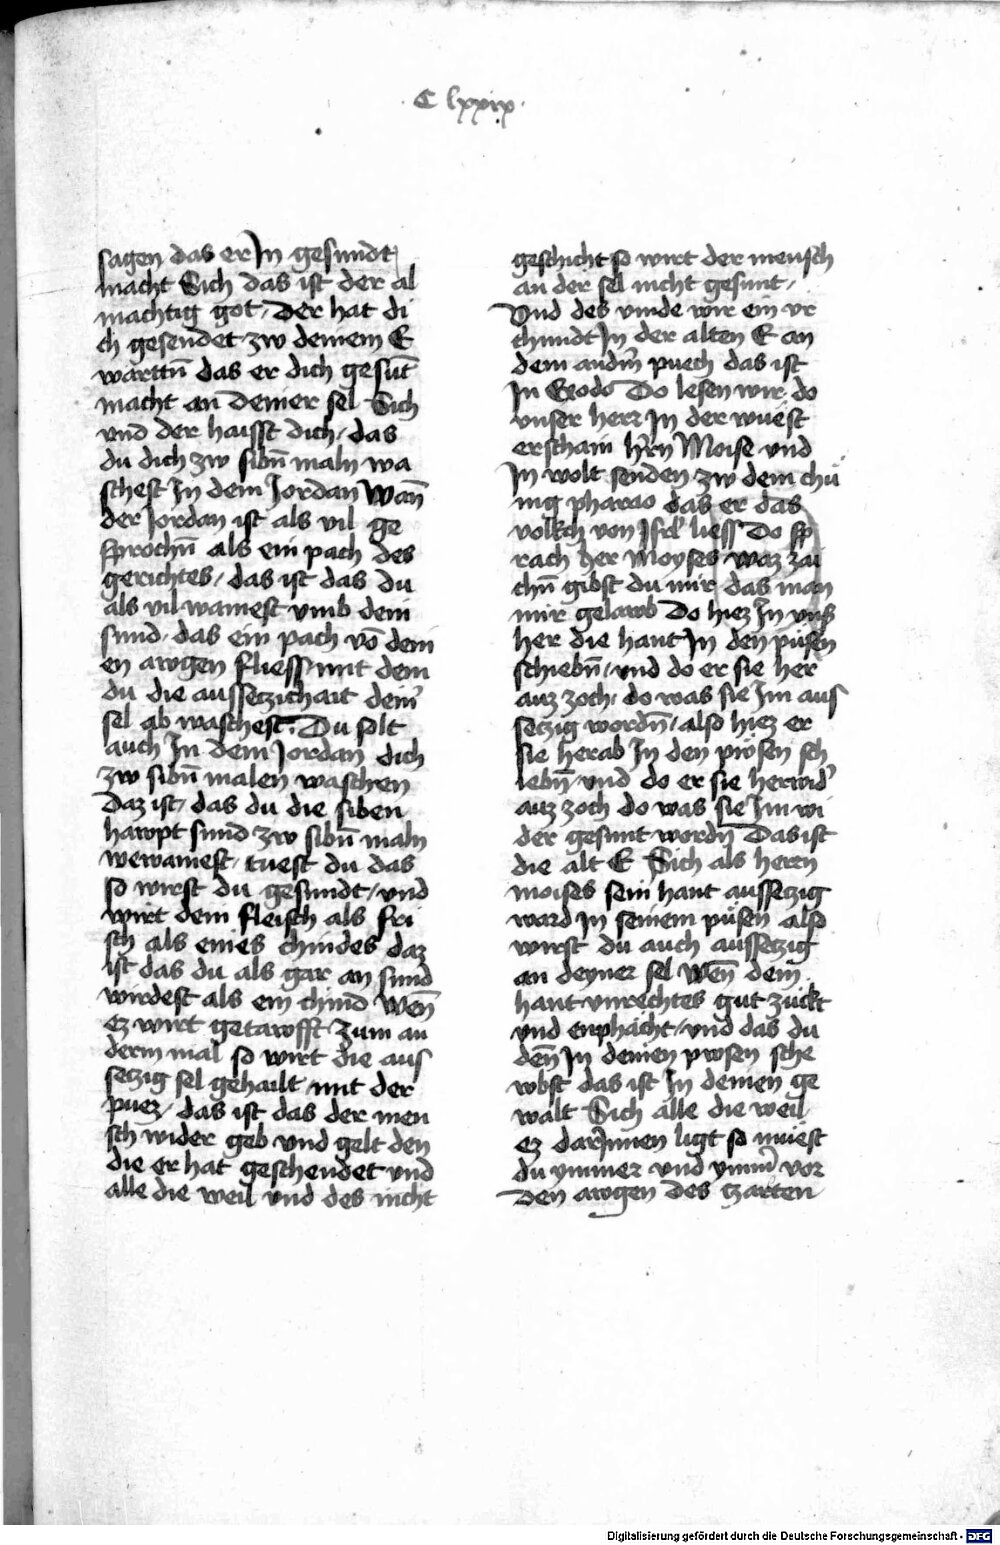 C lxxix
sagen das er In gesundt
macht Sich das ist der al
machtig got / Der hat di
ch gesendet zw deinem E
warttn̄ das er dich gesūt
macht an deiner sel Sich
vnd der haisst dich / das
du dich zw sibn̄ maln wa
schest In dem Jordan Wan̄
der Jordan ist als vil ge
sprochn̄ als ein pach des
gerichtes / das ist das du
als vil wainest vmb dein
sund / das ein pach vō dein
en awgen fliess mit dem
du die aussetzichait dein̄
sel ab waschest. Du solt
auch In dem Jordan dich
zw sibn̄ malen waschen
Daz ist / das du die siben
hawpt sund zw sibn̄ maln
wewainest / tuest du das
so wirst du gesundt / vnd
wirt dein fleisch als fri
sch als eines chindes daz
ist das du als gar an sund
wirdest als ein chind Wen̄
ez wirt getawfft Zum an
derm mal so wirt die aus
setzig sel gehailt mit der
puez / das ist das der men
sch wider geb vnd gelt den
die er hat geschendet vnd
alle die weil vnd des nicht
geschicht so wirt der mensch
an der sel nicht gesunt /
Vnd des vinde wir ein vr
chundt In der alten E an
dem andm̄ puech das ist
In Exodo Do lesen wir do
vnser herr In der wuest
erschain hr̄n Moise vnd
In wolt senden zw dem chü
nig pharao das er das
volkch von Isrl̄ liess Do sp
rach her Moyses waz zai
chn̄ gibst du mir das man
mir gelawb Do hiez In vns
her die hant In den püsen
schiebn̄ / vnd do er sie her
auz zoch / do was sie Im aus
setzig wordn̄ / also hiez er
sie herab In den pwsen sch
iebn̄ vnd do er sie herwid̄
auz zoch do was sie Im wi
der gesunt wordn̄ Das ist
die alt E Sich als herrn
moises sein hant aussetzig
ward In seinem püsen also
wirst du auch aussetzig
an deyner sel Wen̄ dein
hant vnrechtes gut zuckt
vnd enphächt / vnd das du
den̄ In deinen pwsen sche
wbst das ist In deinen ge
walt Sich alle die weil
ez darInnen ligt so müest
du ymmer vnd ymm̄ vor
den awgen des zarten
Digitalisierung gefördert durch die Deutsche Forschungsgemeinschaft - DFG